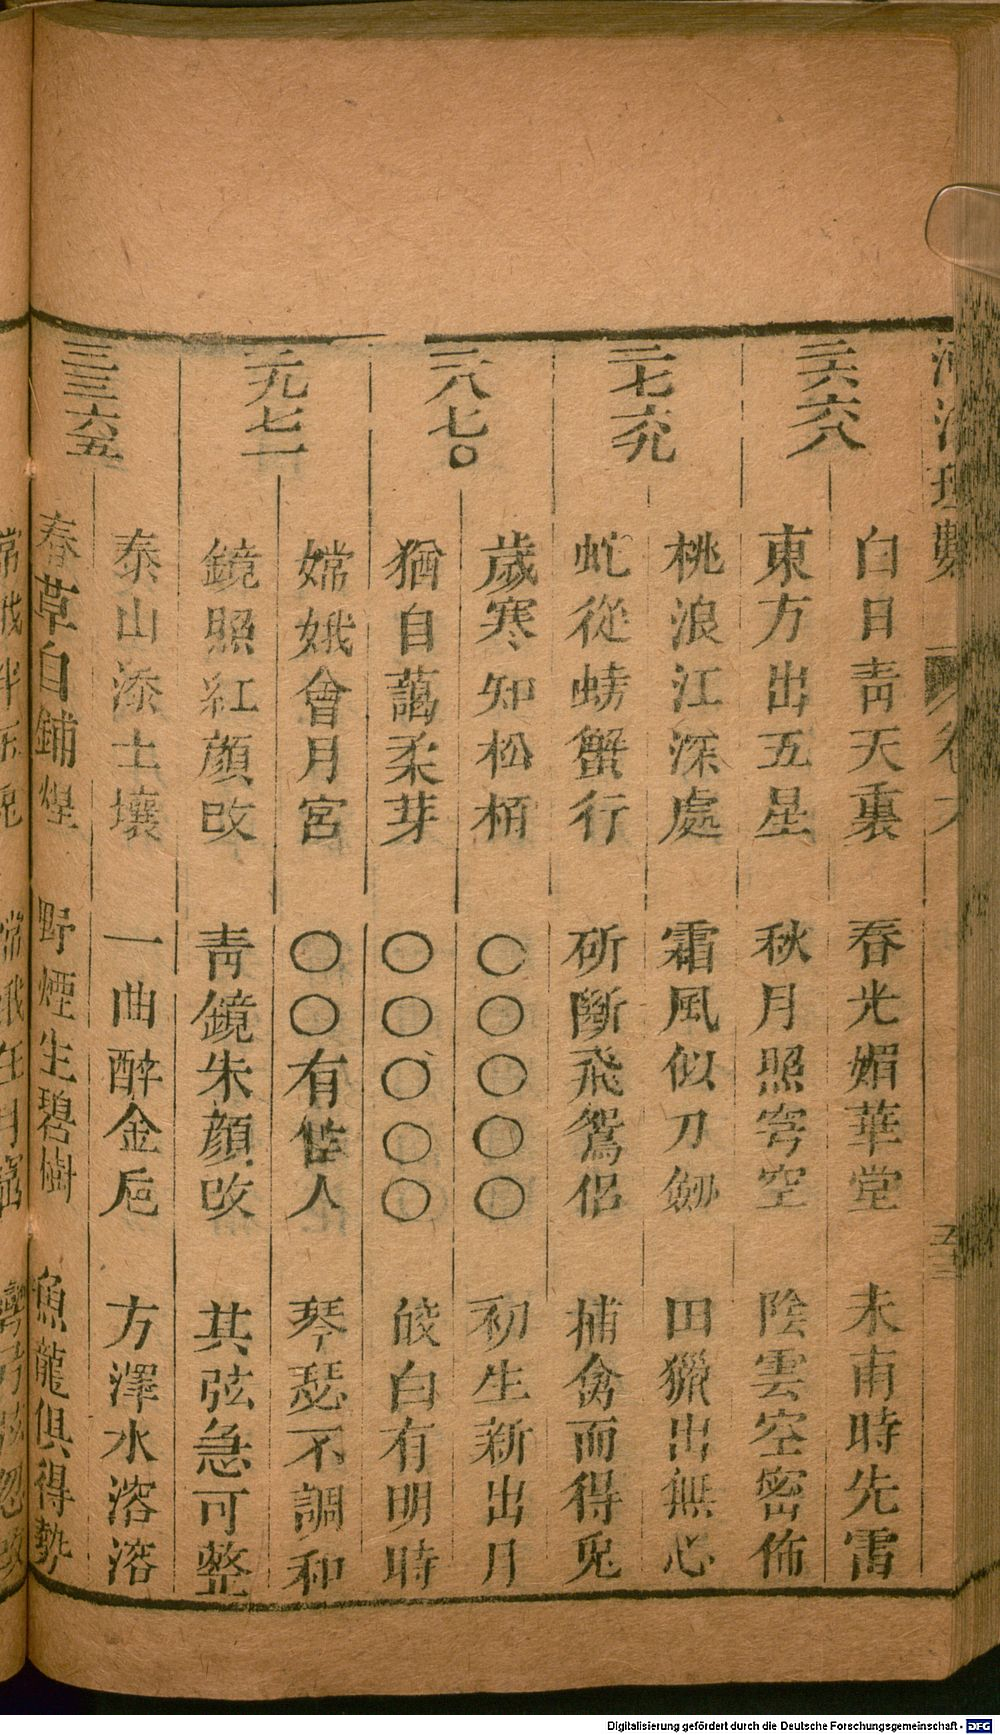 白日靑天裏　春光媚華堂　未雨時先雷
二六六八
東方出五星　秋月照穹空　陰雲空密佈
桃浪江深處　霜風似刀劒　田獵出無心
二七六九
蛇從蜣蟹行　斫斷飛鴛侶　捕禽而得兎
歲寒知松栢　〇〇〇〇〇　初生新出月
二八七〇
猶自藹柔芽　〇〇〇〇〇　皎白有明時
嫦娥會月宮　〇〇有佳人　琴瑟不調和
二九七一
鏡照紅顏改　靑鏡朱顏改　其弦急可整
泰山添土壤　一曲醉金卮　方澤水溶溶
三三六五
春草自鋪煌　野煙生碧樹　魚龍俱得勢
Digitalisierung gefördert durch die Deutsche Forschungsgemeinschaft - DFG